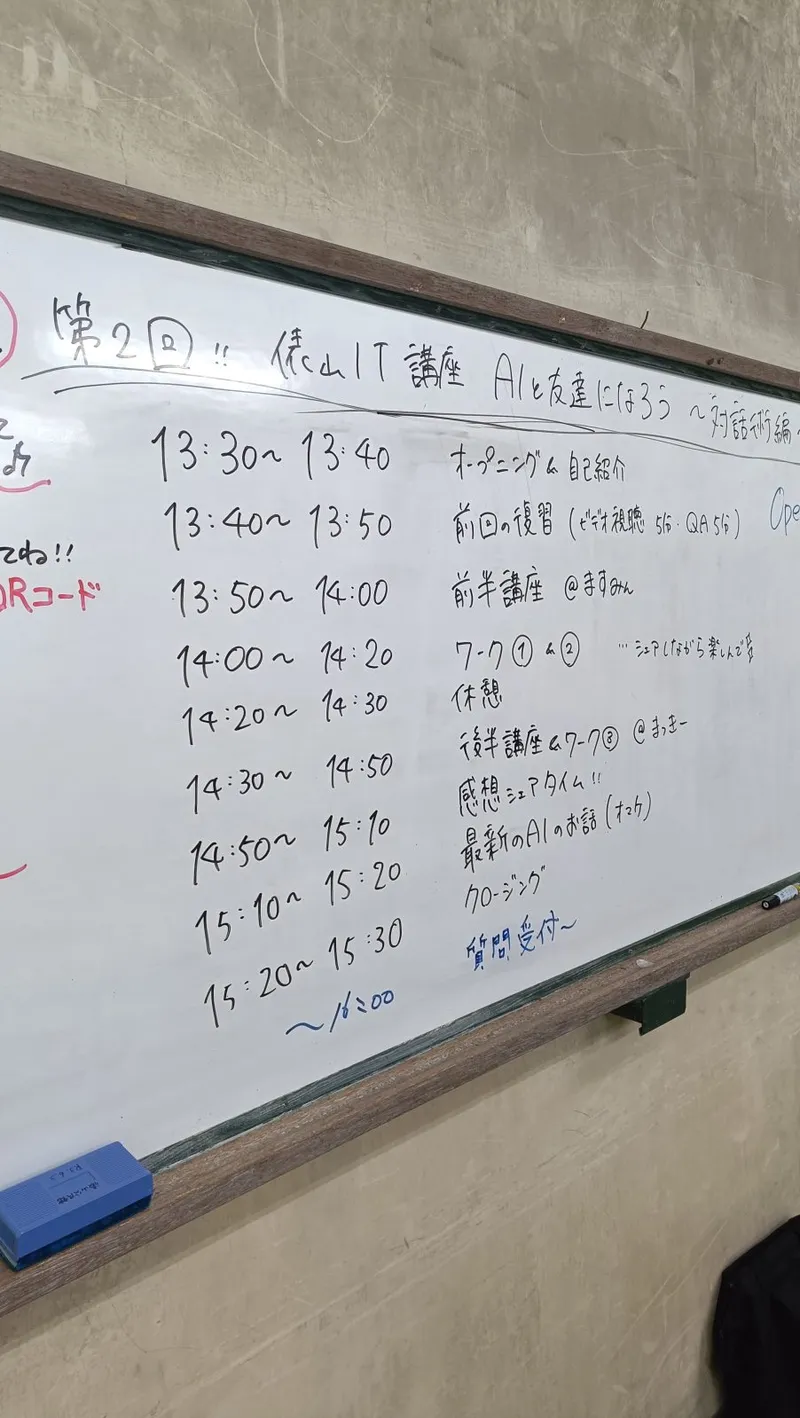 第2回!! 俵山IT講座 AIと友達になろう ～対話術編～
13:30～ 13:40 オープニング& 自己紹介
13:40～ 13:50 前回の復習 (ビデオ視聴 5分・QA 5分)
13:50～ 14:00 前半講座 @ますみん
14:00～ 14:20 ワーク① & ② …シェアしながら楽しんで
14:20～ 14:30 休憩
14:30～ 14:50 後半講座&ワーク③ @まっきー
14:50～ 15:10 感想シェアタイム!!
15:10～ 15:20 最新のAIのお話 (オマケ)
15:20～ 15:30 クロージング
～16:00 質問受付～
て
てね!!
QRコード
Ope